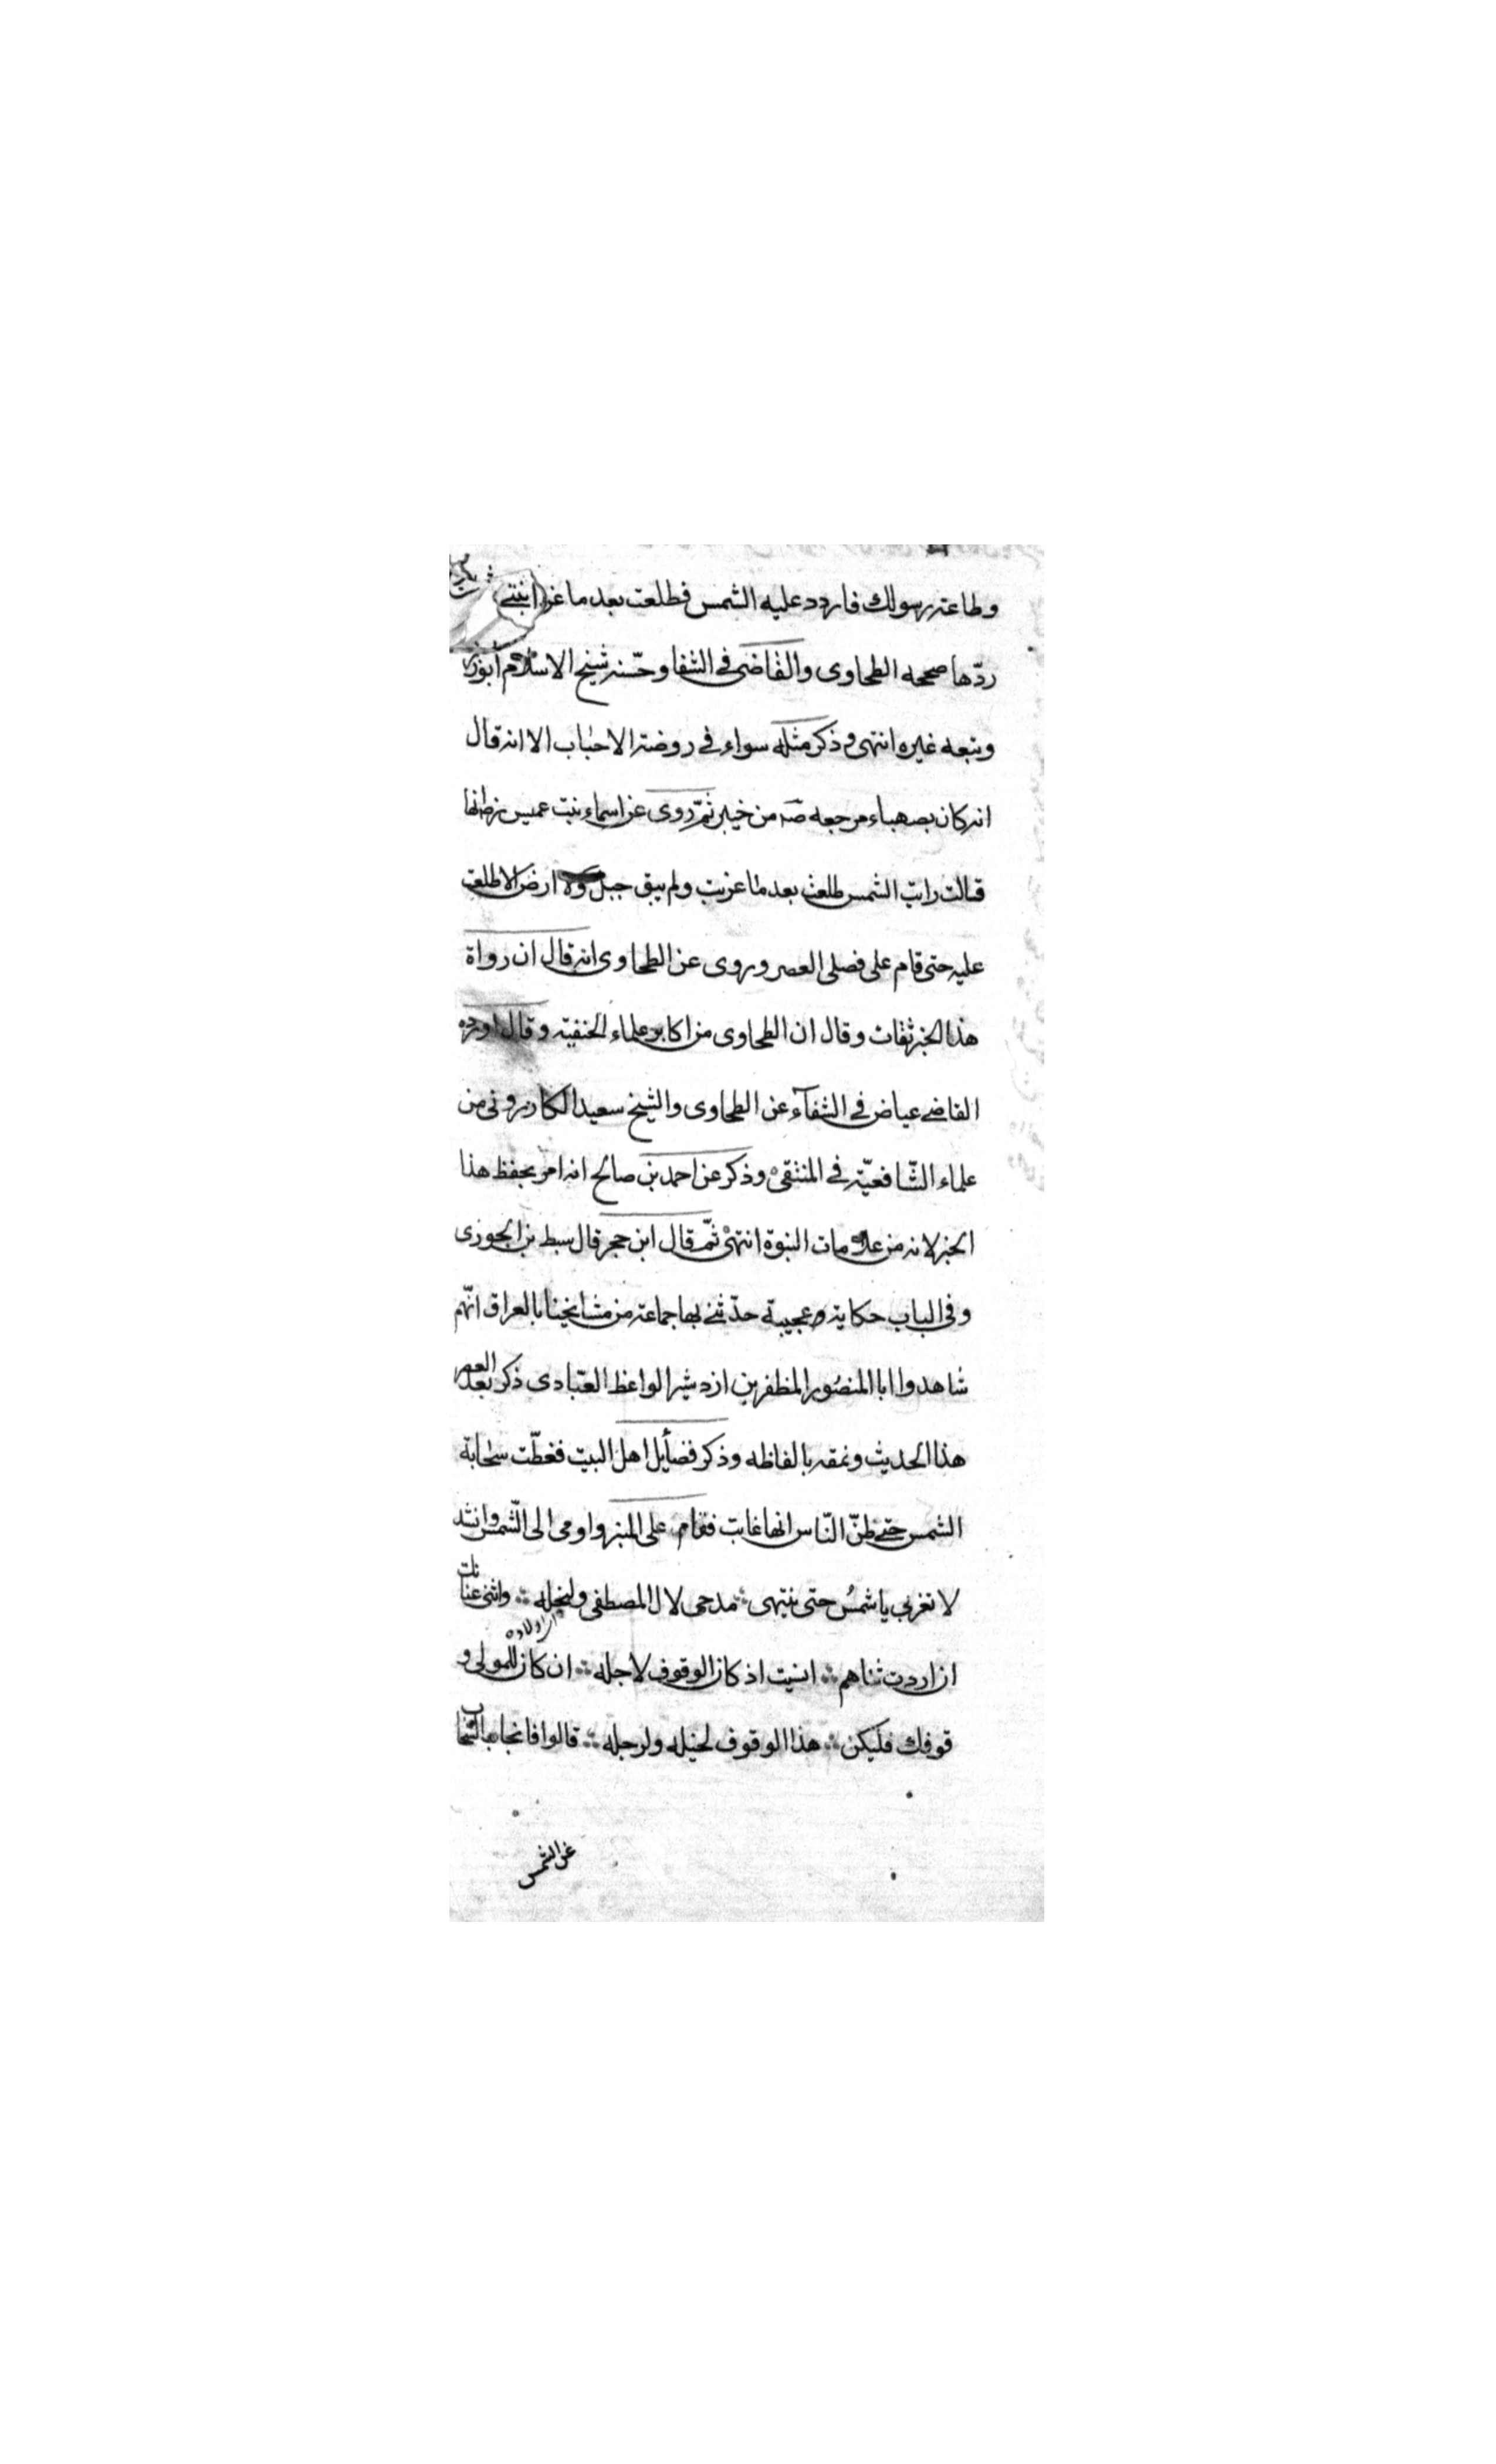 وطاعة رسولك فاردد عليه الشمس فطلعت بعد ما غر
ردّها صححه الطحاوى والقاضى فى الشفا وحسّنه شيخ الاسلام ابوزر
وتبعه غيره انتهى وذكر مثله سواء فى روضة الاحباب الا انه قال
انه كان بصهباء مرجعه صَه من خيبر ثمّ روى عن اسماء بنت عميس
قالت رايت الشمس طلعت بعد ما غربت ولم يبق جبل ولا ارض الا طلعت
عليه حتى قام على فصلى العصر وروى عن الطحاوى انه قال ان رواة
هذا الخبر ثقات وقال ان الطحاوى من اكابر علماء الحنفيّة وقال اورده
القاضى عياض فى الشفآء عن الطحاوى والشيخ سعيد الكازرونى من
علماء الشّافعيّة فى المنتقى وذكر عن احمد بن صالح انه امر بحفظ هذا
الخبر لانه من علامات النبوة انتهى ثمّ قال ابن حجر قال سبط بن الجوزى
وفى الباب حكاية عجيبة حدّثنى بها جماعة من مشايخنا بالعراق انّهم
شاهدوا ابا المنصُور المظفر بن ازدشير الواعظ العبّادى ذكر بعد العصر
هذا الحديث ونمقه بالفاظه وذكر فضائل اهل البيت فغطّت سحابة
الشمس حتى ظنّ النّاس انها غابت فقام على المنبر واومى الى الشّمس وانشد
لا تغربى يا شمسُ حتى ينتهى ∴ مدحى لال المصطفى ولنجله ∴ واثنى عنانك
ان اردت ثناهم ∴ انسيت اذ كان الوقوف لاجله ∴ ان كان للمولى و
از اولاده
قوفك فليكن ∴ هذا الوقوف لخيله ولرجله ∴ قالوا فانجاب السّحاب
عن الشمس